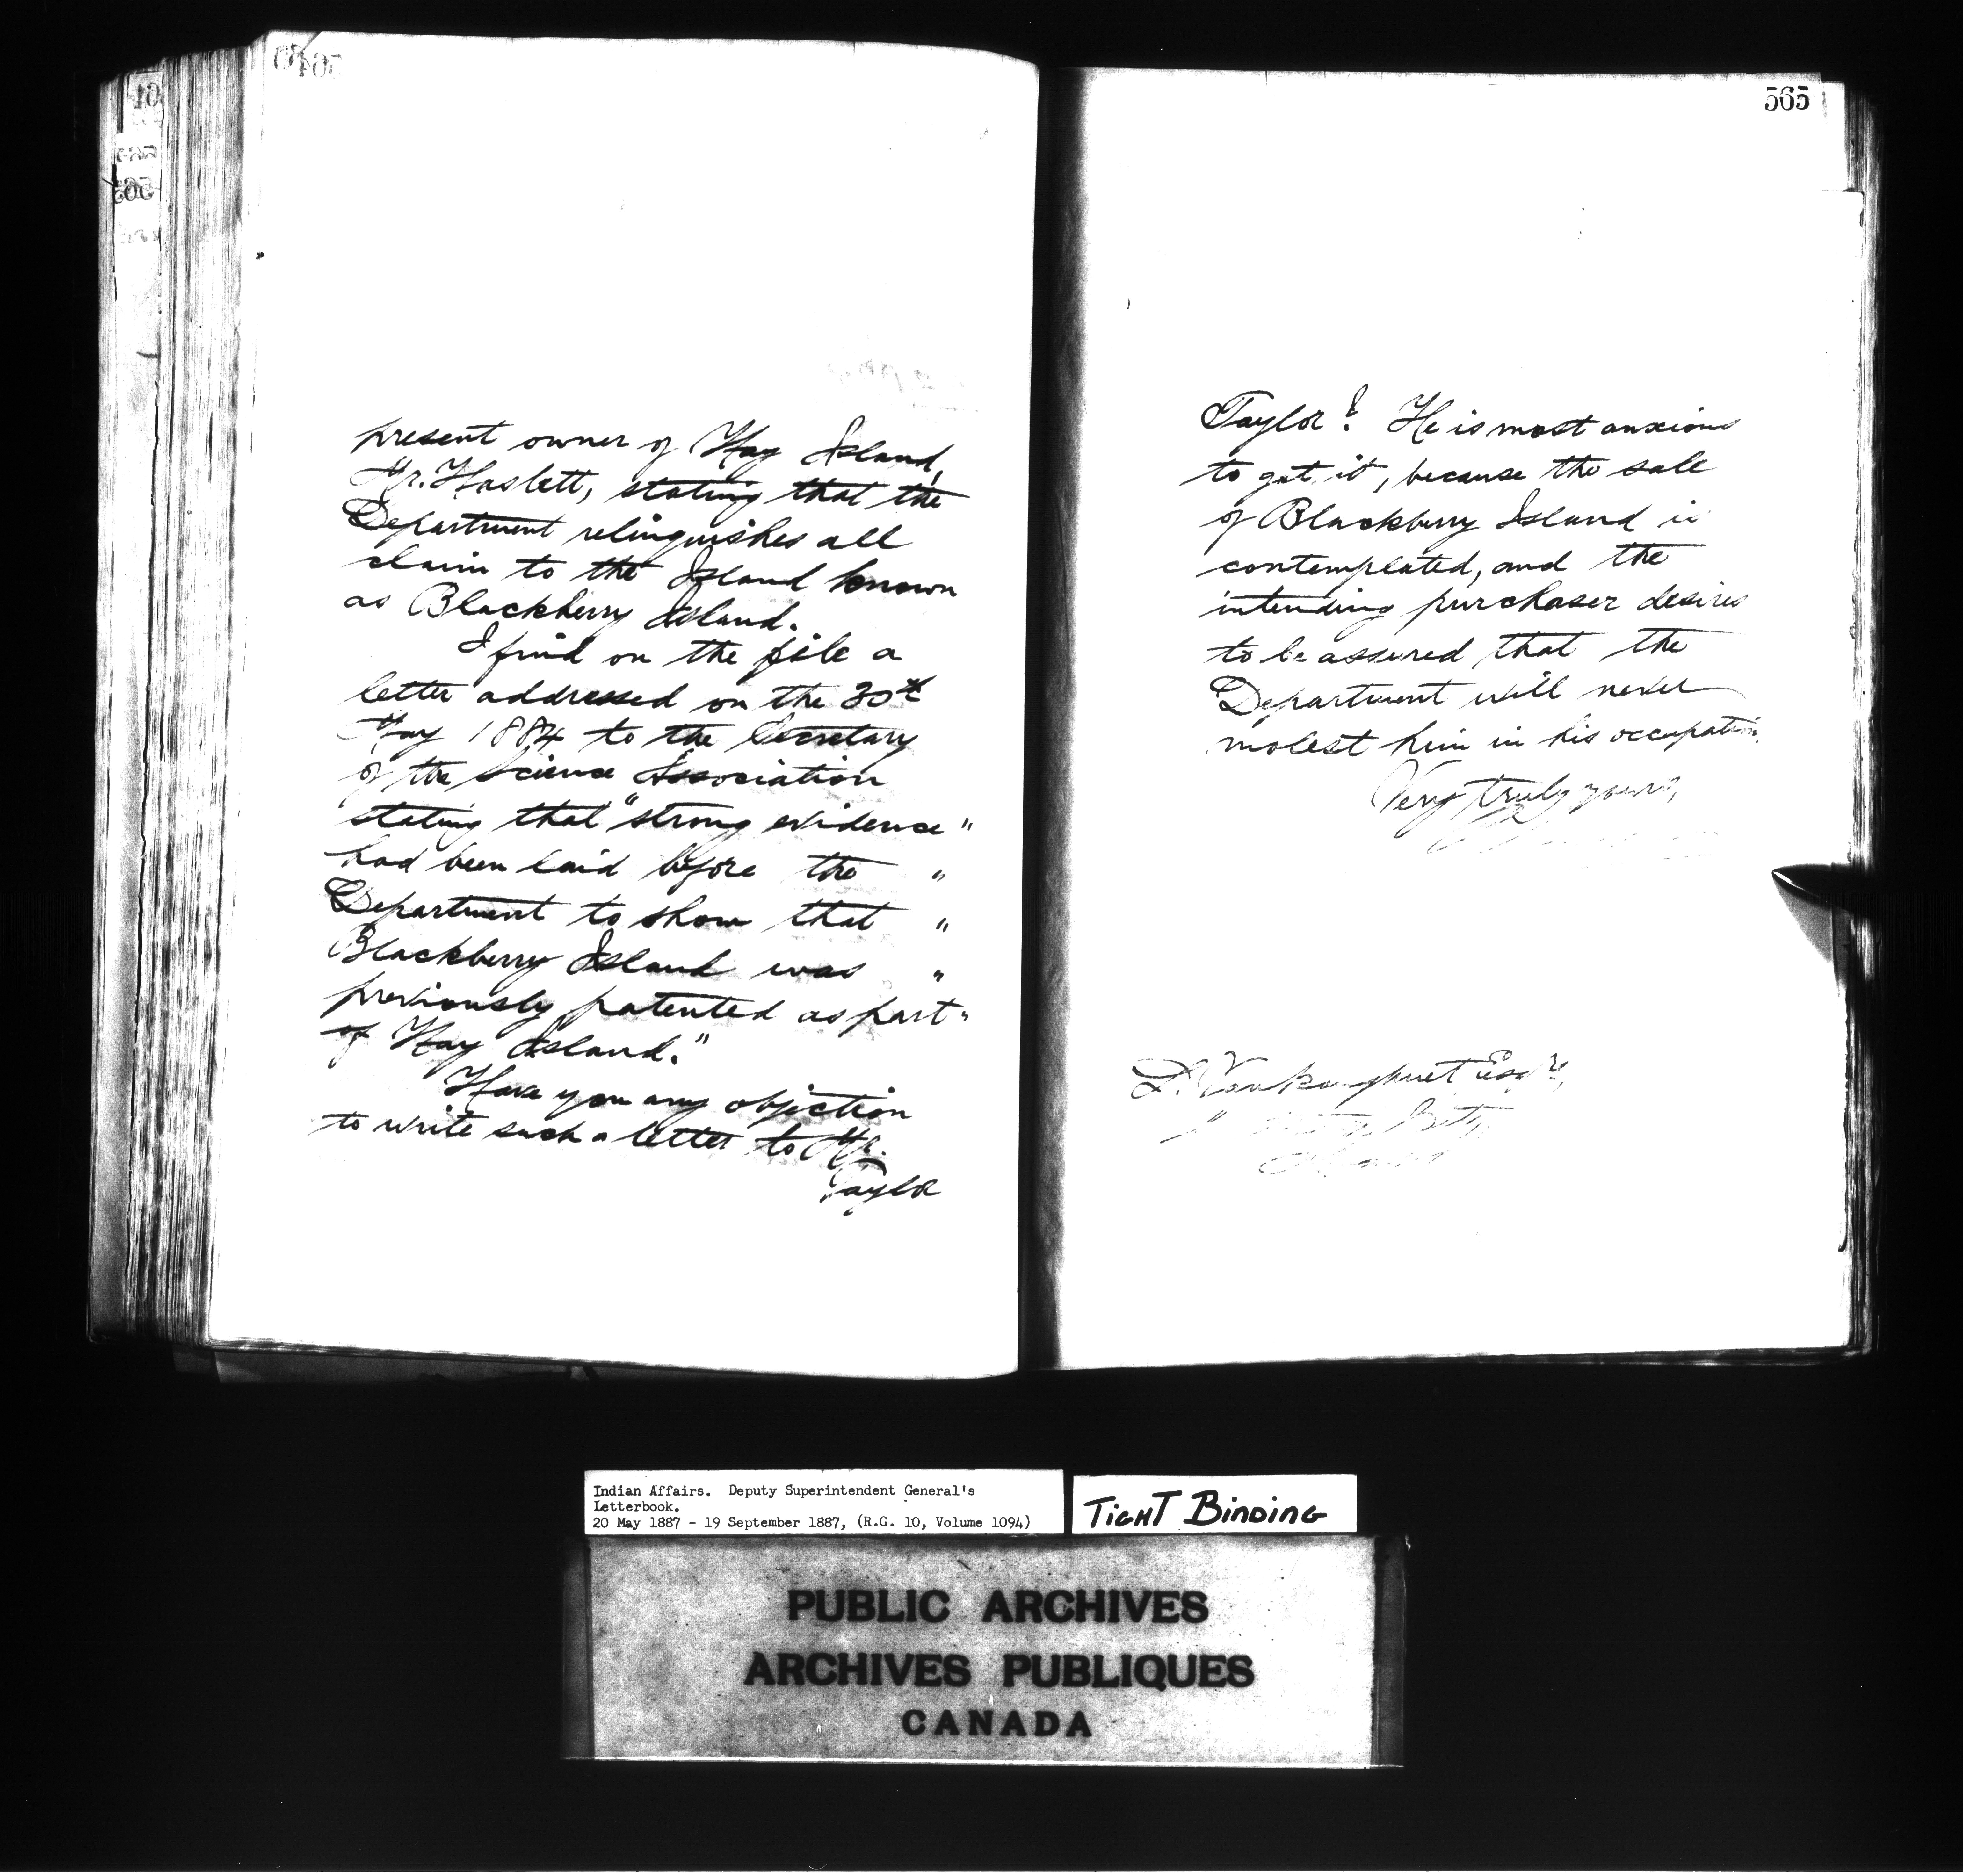 present owner of Hay Island,
Mr. Haslett, stating that the
Department relinquishes all
claim to the Island known
as Blackberry Island.
I find on the file a
letter addressed on the 30th
May 1884 to the Secretary
of the Science Association
stating that "strong evidence"
had been laid before the "
Department to show that "
Blackberry Island was "
previously patented as part "
of Hay Island."
Have you any objection
to write such a letter to Mr.
Taylor
565
Taylor? He is most anxious
to get it, because the sale
of Blackberry Island is
contemplated, and the
intending purchaser desires
to be assured that the
Department will never
molest him in his occupation.
Very truly yours,
L. Vankoughnet Esqre,
Indian Affairs. Deputy Superintendent General's
Letterbook.
20 May 1887 - 19 September 1887, (R.G. 10, Volume 1094)
TIGHT BINDING
PUBLIC ARCHIVES
ARCHIVES PUBLIQUES
CANADA